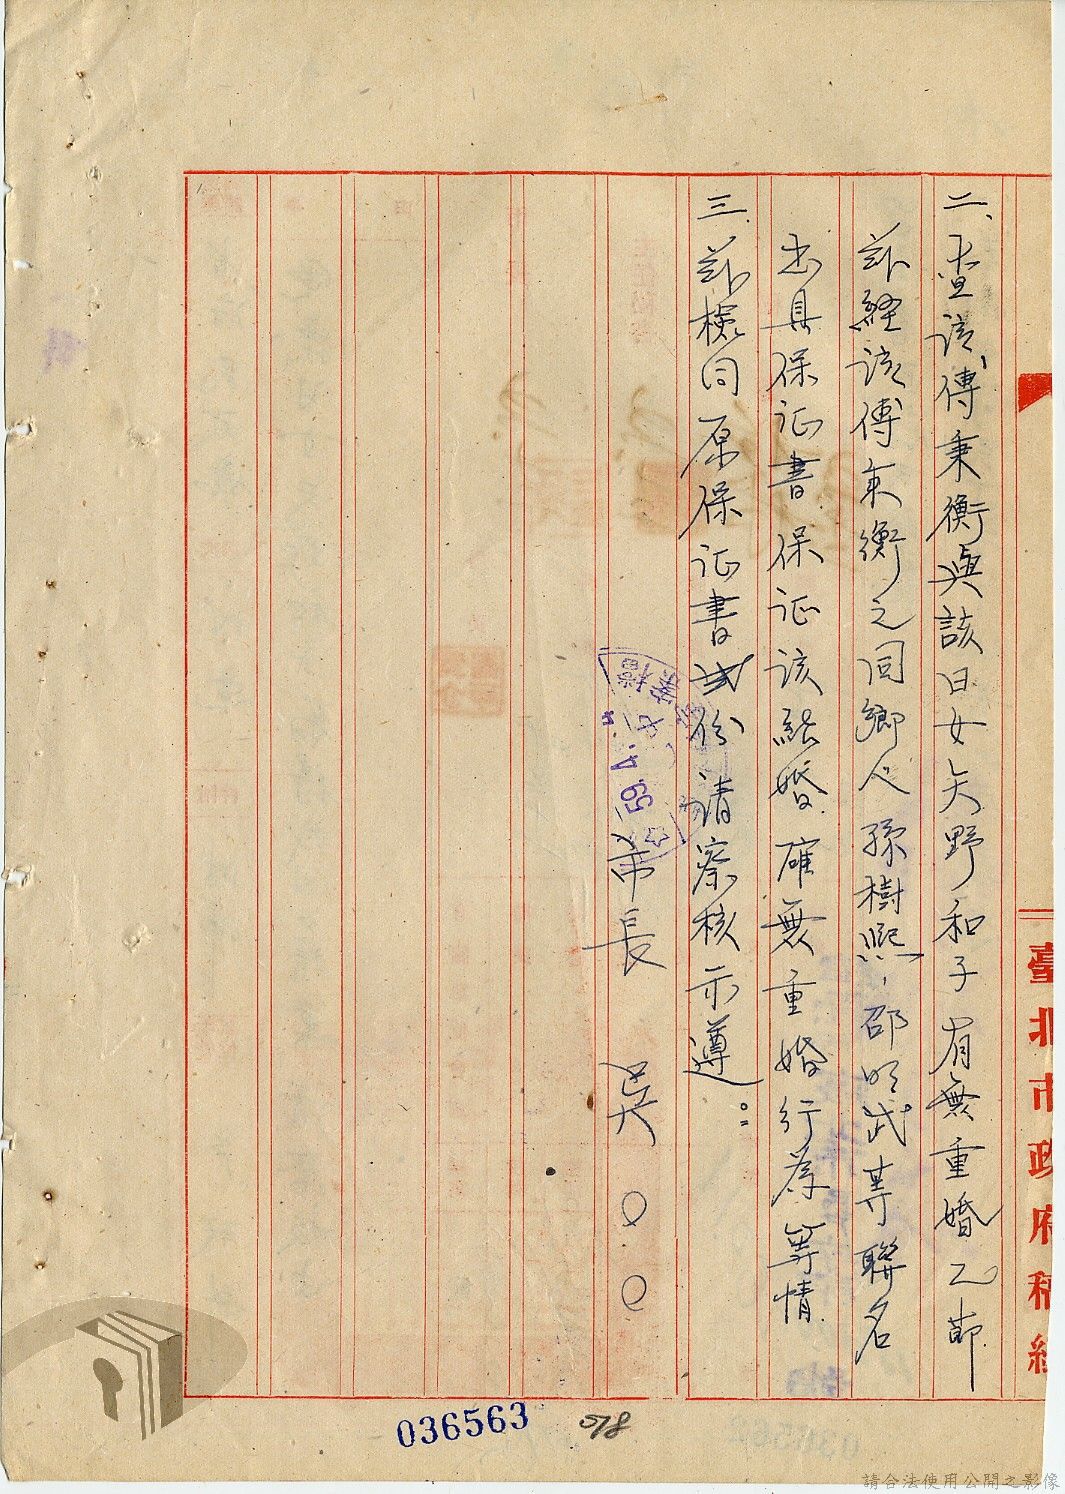 臺北市政府稿紙
二、查該傅秉衡與該日女矢野和子有無重婚乙節
茲經該傅秉衡之同鄉人孫樹熙、邵明武等聯名
出具保证書保证該結婚確無重婚行為等情
三、茲檢同原保证書弍份请察核示遵。
市長 吳○○
59.4.
檔案
036563
578
請合法使用公開之影像